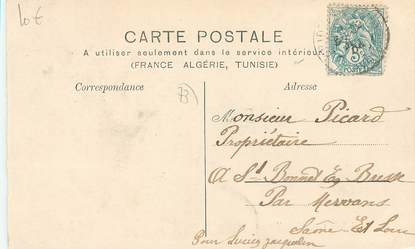 Lot
CARTE POSTALE
A utiliser seulement dans le service intérieur
(FRANCE ALGÉRIE, TUNISIE)
Correspondance
Adresse
Monsieur Picard
Propriétaire
A St Bonnet En Bresse
Par Mervans
Saône Et Loire
Pour Lucien Jacquelin